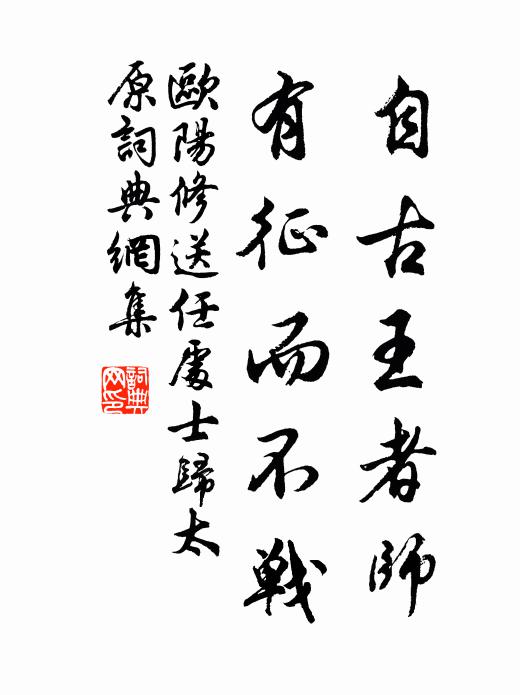 自古王者師
有征而不戰
歐陽修送任處士歸太
原詞典網集
詞典
网印